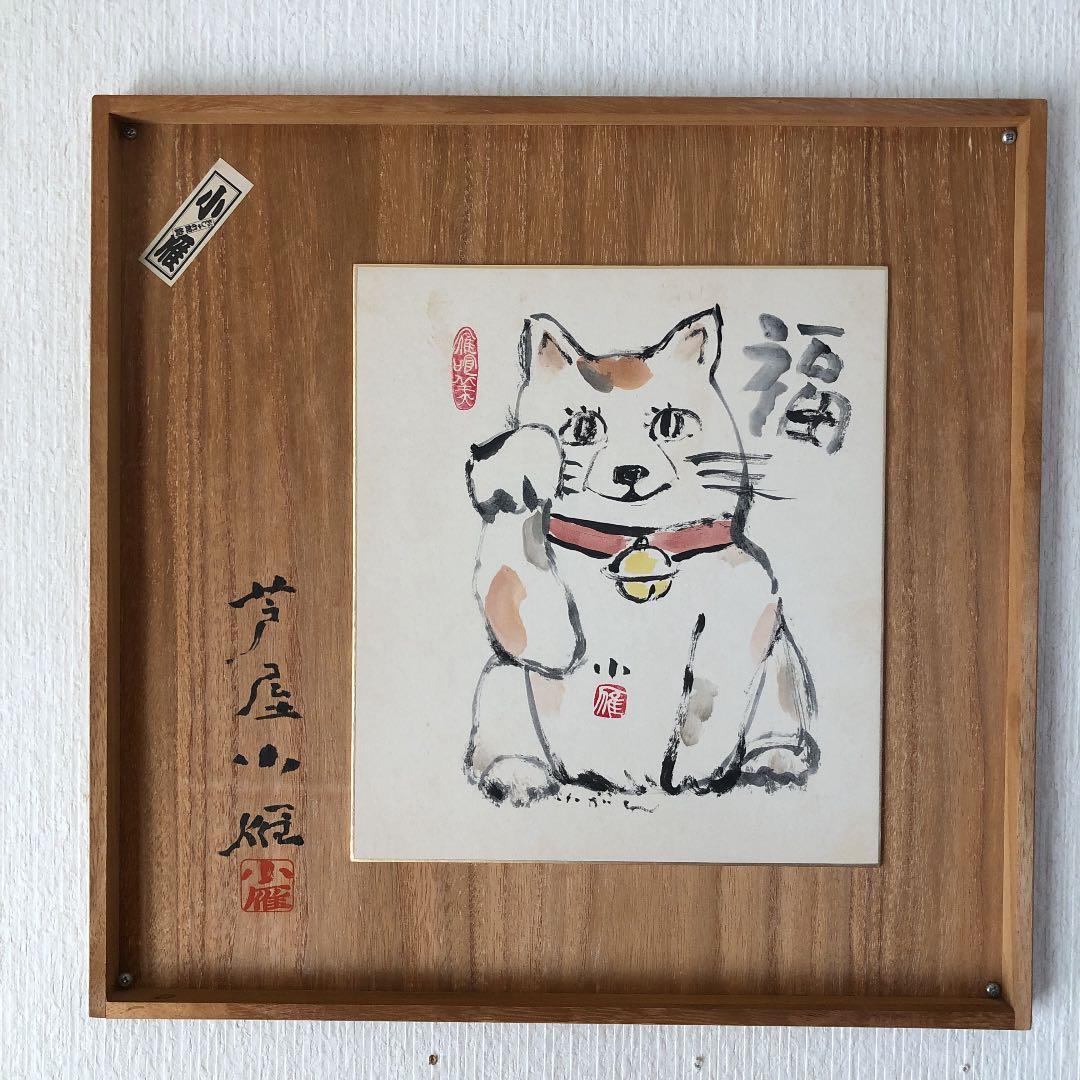 福
雁喰笑
小
雁
芦屋小雁
小雁
小雁